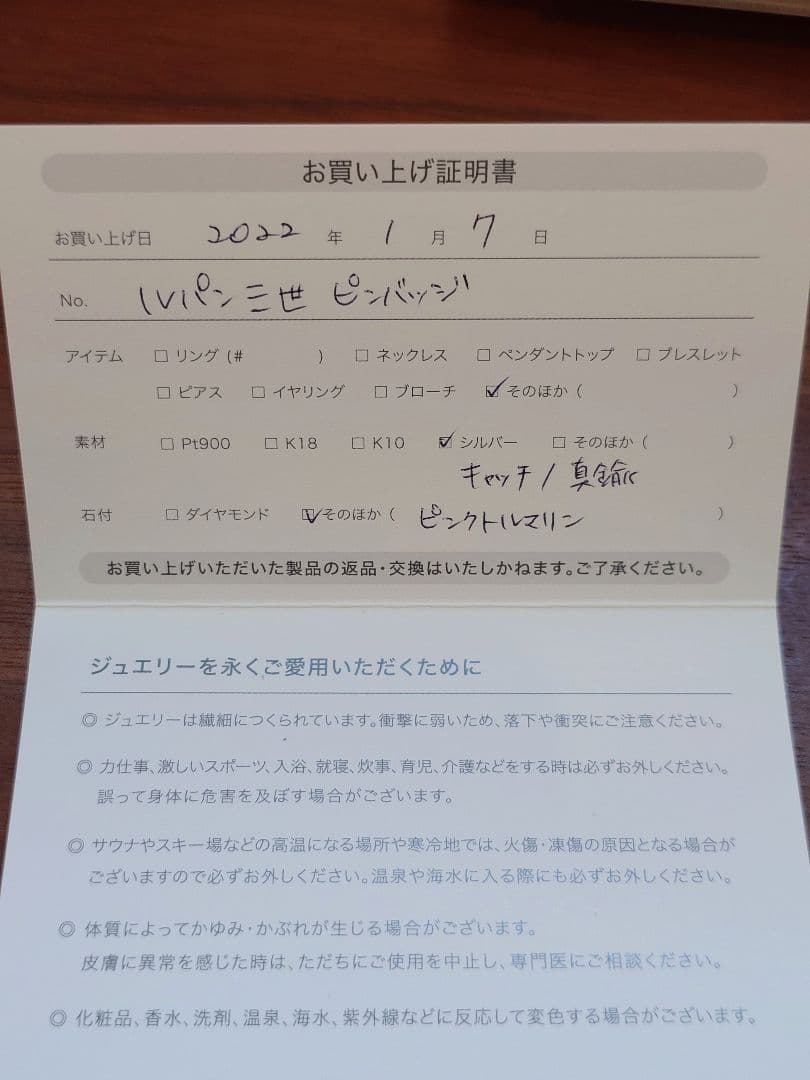 お買い上げ証明書
お買い上げ日 2022 年 1 月 7 日
No. ルパン三世 ピンバッジ
アイテム □ リング (# ) □ ネックレス □ ペンダントトップ □ ブレスレット
□ ピアス □ イヤリング □ ブローチ ☑ そのほか ( )
素材 □ Pt900 □ K18 □ K10 ☑ シルバー □ そのほか ( )
キャッチ/真鍮
石付 □ ダイヤモンド ☑ そのほか ( ピンクトルマリン )
お買い上げいただいた製品の返品・交換はいたしかねます。ご了承ください。
ジュエリーを永くご愛用いただくために
◎ ジュエリーは繊細につくられています。衝撃に弱いため、落下や衝突にご注意ください。
◎ 力仕事、激しいスポーツ、入浴、就寝、炊事、育児、介護などをする時は必ずお外しください。
誤って身体に危害を及ぼす場合がございます。
◎ サウナやスキー場などの高温になる場所や寒冷地では、火傷・凍傷の原因となる場合が
ございますので必ずお外しください。温泉や海水に入る際にも必ずお外しください。
◎ 体質によってかゆみ・かぶれが生じる場合がございます。
皮膚に異常を感じた時は、ただちにご使用を中止し、専門医にご相談ください。
◎ 化粧品、香水、洗剤、温泉、海水、紫外線などに反応して変色する場合がございます。